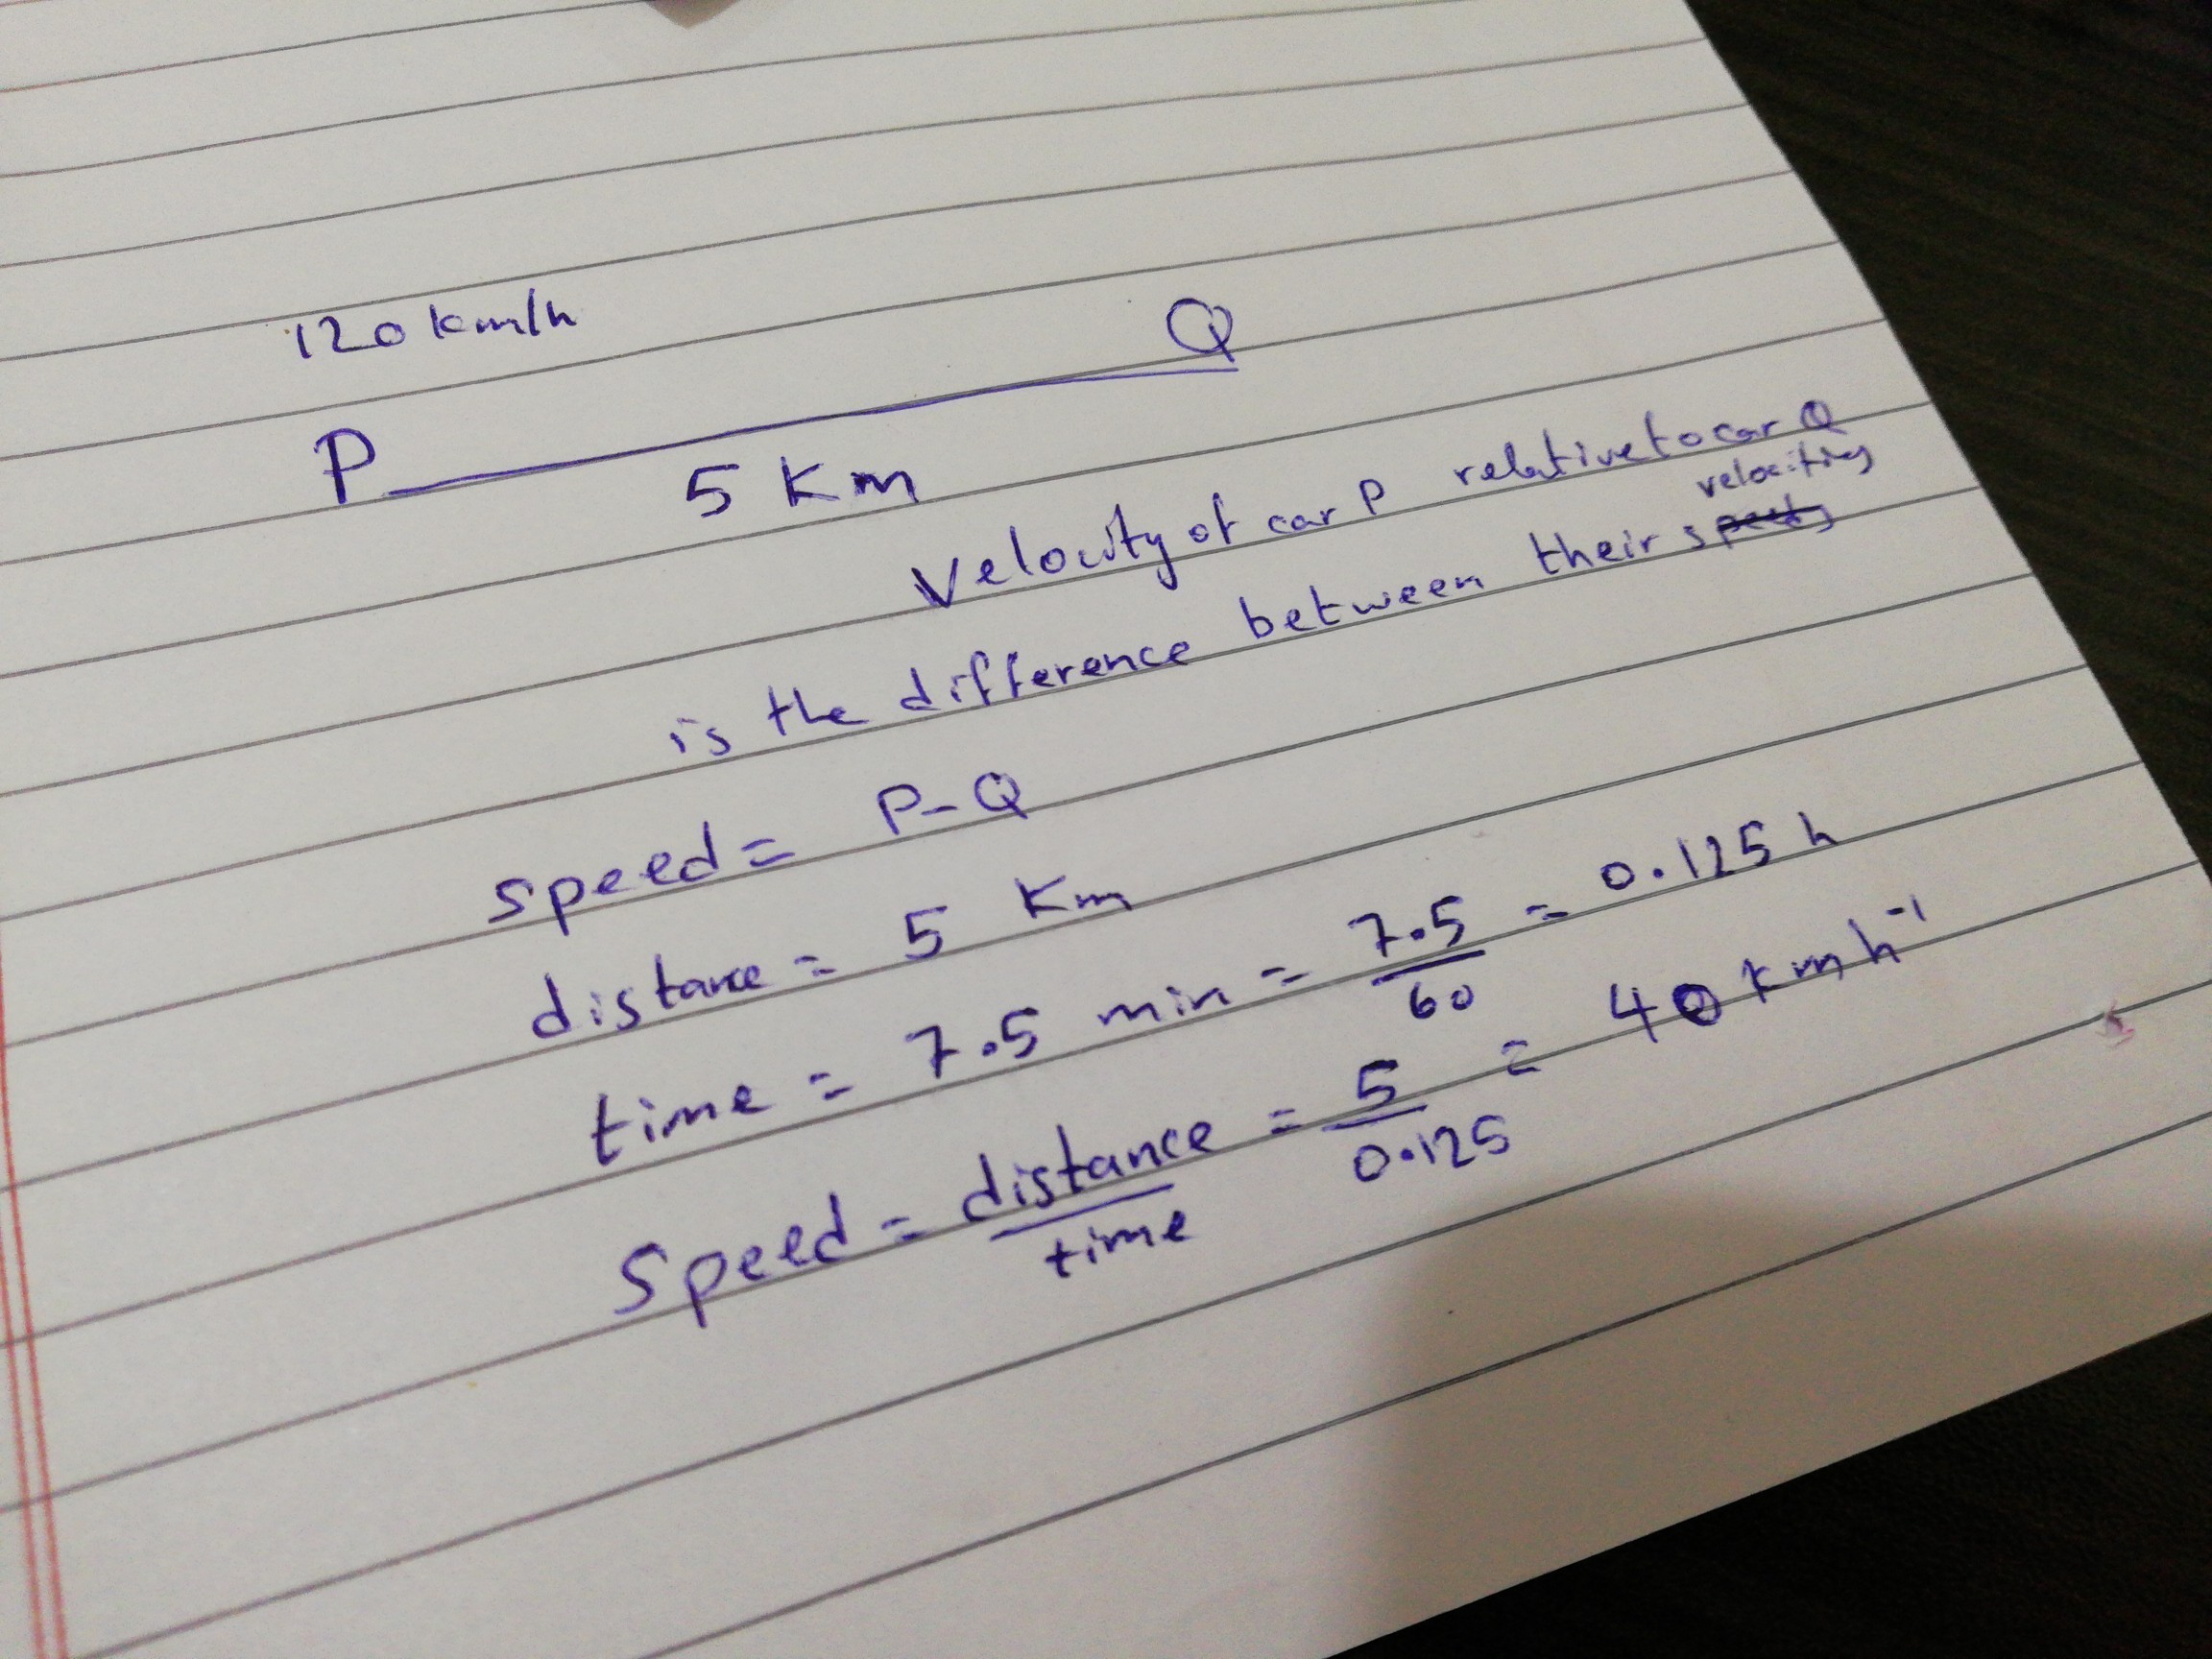 120 km/h
P Q
5 Km
Velocity of car P relative to car Q
is the difference between their speeds velocities
speed = P - Q
distance = 5 Km
time = 7.5 min = 7.5/60 = 0.125 h
Speed = distance/time = 5/0.125 = 40 km h⁻¹